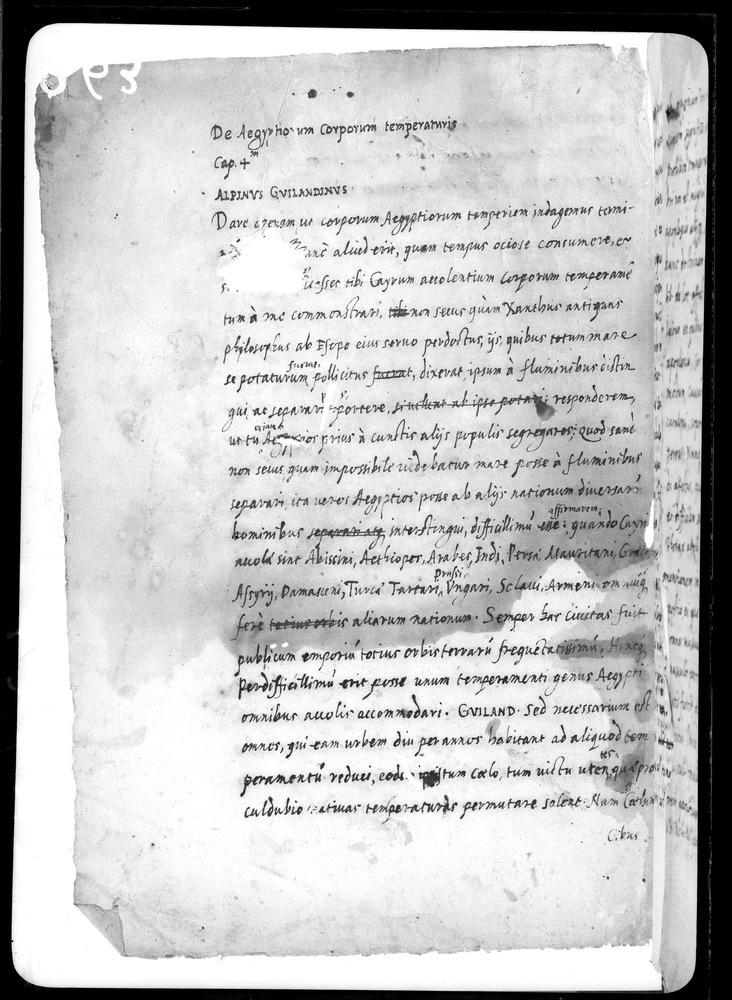 De Aegyptiorum Corporum temperaturis
Cap. 4m
ALPINVS GVILANDINVS
Dare operam ut corporum Aegyptiorum temperiem indagemus termi-
aliud erit, quam tempus ociose consumere, et
tibi Cayrum accolentium Corporum temperamē
tum à me commonstrari, tibi non secus quàm Xanthus antiquus
philosophus ab Esopo eius seruo perdoctus, ijs, quibus totum mare
se potaturum fuerat pollicitus, dixerat, ipsum à fluminibus distin
gui, ac separari oportere, si uellent ab ipso potari; responderem,
ut tu etiam prius à cunctis alijs populis segregares; Quod sanè
non secus quam impossibile uidebatur mare posse à fluminibus
separari, ita ueros Aegyptios posse ab alijs nationum diuersarū
hominibus separari atq interstingui, difficillimū esse affirmarem: quando Cayri
accolae sint Abissini, Aethiopes, Arabes, Indi, Persae Mauritani, Graeci
Assyrij, Damasceni, Turcae Tartari, Prussi, Vngari, Sclaui, Armeni
ferè totius orbis aliarum nationum. Semper haec Ciuitas fuit
publicum emporiū totius orbis terrarū frequētatissimū, Hincq
Perdifficillimū erit posse unum temperamenti genus Aegypti
omnibus accolis accommodari. GVILAND. Sed necessarium est
omnes, qui eam urbem diu per annos habitant ad aliquod tem
peramentū reduci, eodē tum coelo, tum uictu utentes, quae pro
culdubio natiuas temperaturas permutare solent. Nam Coelum
Cibus